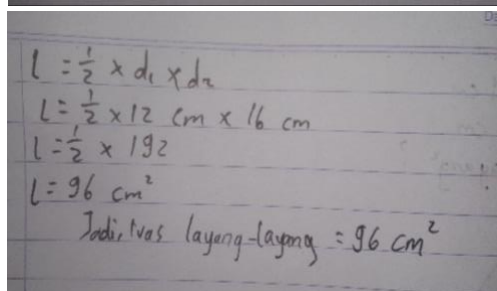 L = 1/2 × d₁ × d₂
L = 1/2 × 12 cm × 16 cm
L = 1/2 × 192
L = 96 cm²
Jadi, luas layang-layang = 96 cm²